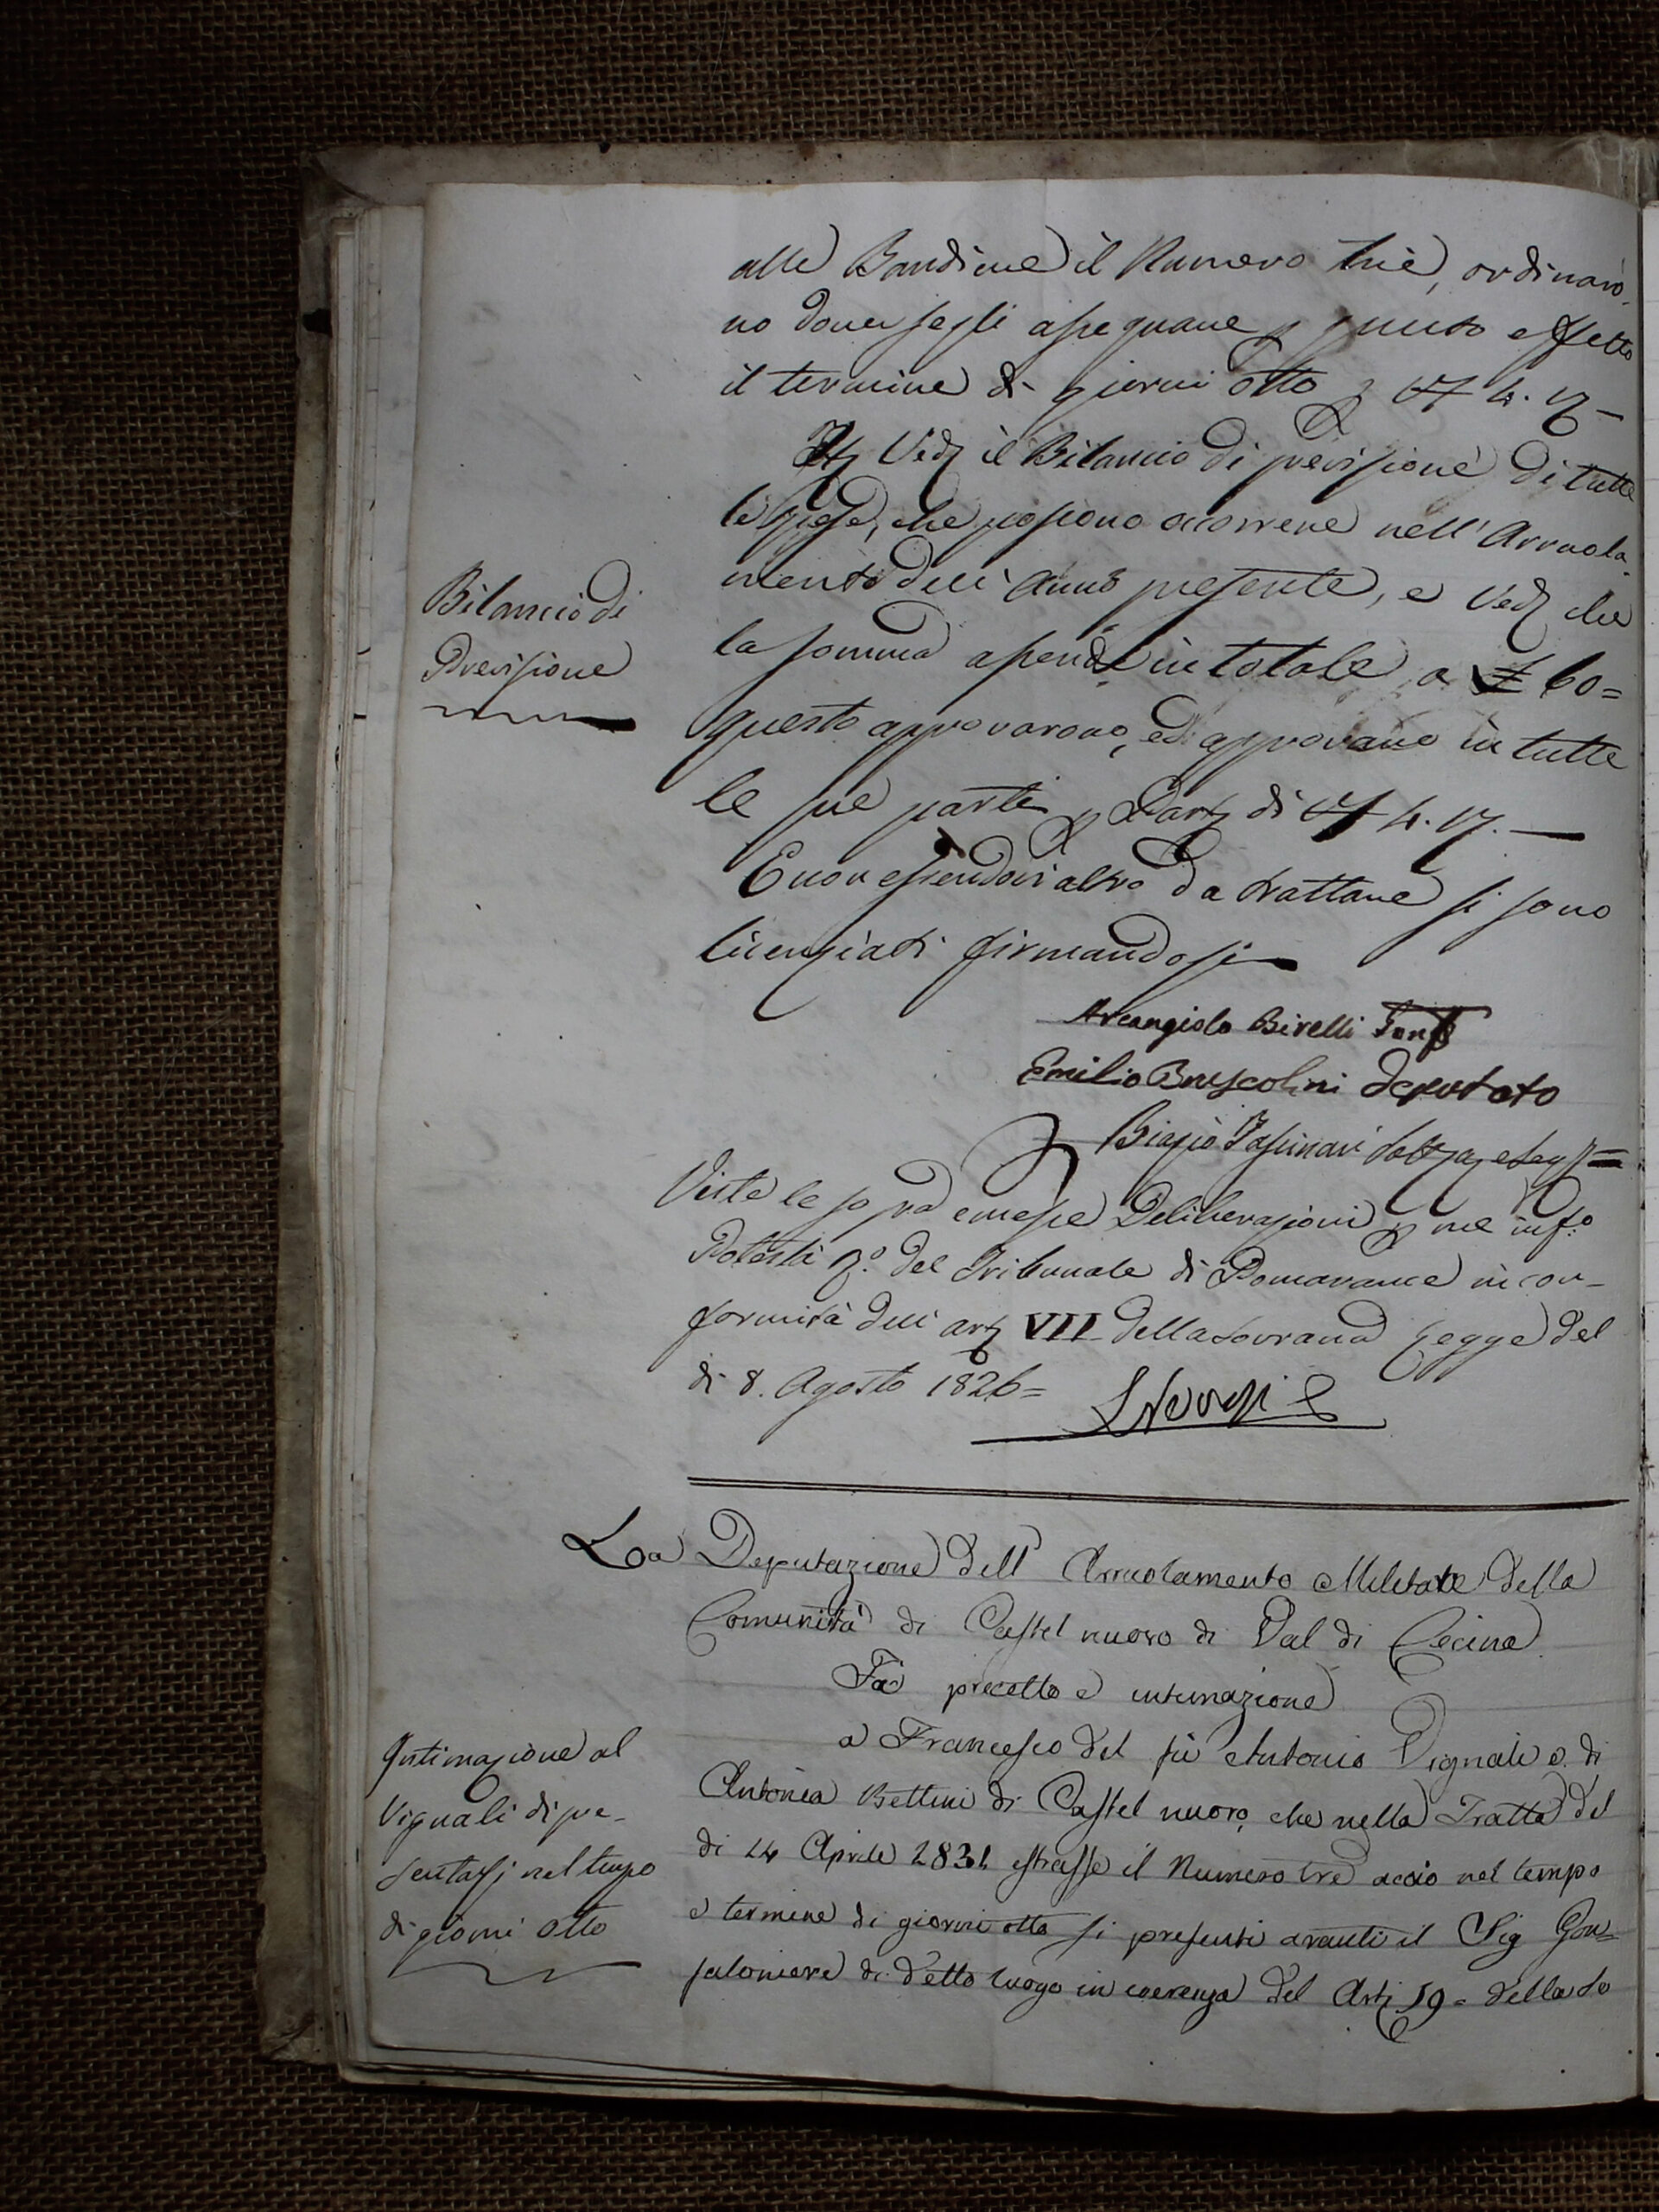 alle Bandiere il Numero trè, ordinaro-
no doversegli assegnare p questo effetto
il termine di giorni otto p
It Ved il Bilancio di previsione di tutte
le spese, che possono occorrere nell' Arruola-
mento dell' Anno presente, e Ved che
Bilancio di
Previsione
la somma ascende in totale a £ 60=
questo approvarono, ed approvano in tutte
le sue parti p Part di
E non essendovi altro da trattare si sono
licenziati firmandosi
Arcangiolo Birelli Gonf
Emilio Bruscolini deputato
Biagio
Viste le sopra emesse Deliberazioni p me info
Potestà del Tribunale di Pomarance in con-
formità dell' art VII della Sovrana Legge del
di 8. Agosto 1826=
La Deputazione dell' Arruolamento Militare della
Comunità di Castel nuovo di Val di Cecina
Fà precetto e intimazione
a Francesco del fù Antonio Vignali e di
Antonia Bettini di Castel nuovo, che nella Tratta del
di 14 Aprile 1831 estrasse il Numero tre accio nel tempo
e termine di giorni otto si presenti avanti il Sig Gon=
faloniere di detto luogo in coerenza del Art 59= della So
Intimazione al
Vignali di pre-
sentarsi nel tempo
di giorni otto